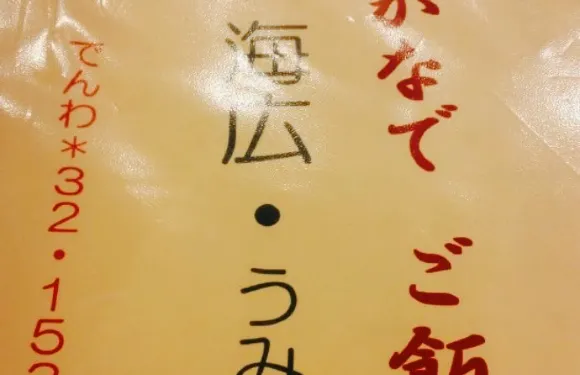 かなで ご飯
海広・うみ
でんわ*32・152